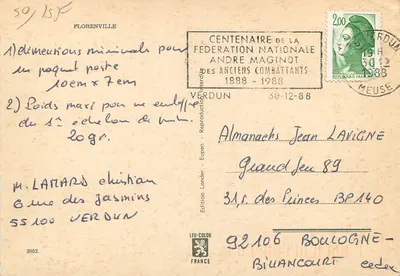 50, 15F
FLORENVILLE
1) dimentions minimales pour
un paquet poste
10cm x 7cm
2) Poids maxi pour
du 1° échelon de
20gr.
M. LAMARD christian
6 rue des Jasmins
55100 VERDUN
3052.
Edition Lander - Eupen - Reproduction interdite
LIS-COLOR
FRANCE
CENTENAIRE DE LA
FEDERATION NATIONALE
ANDRE MAGINOT
DES ANCIENS COMBATTANTS
1888 - 1988
VERDUN 30-12-88
2,00
VERDUN
19 H
30-12
1988
MEUSE
Almanachs Jean LAVIGNE
Grand Jeu 89
31, r. des Princes BP 140
92106 BOULOGNE-
BILLANCOURT cedex